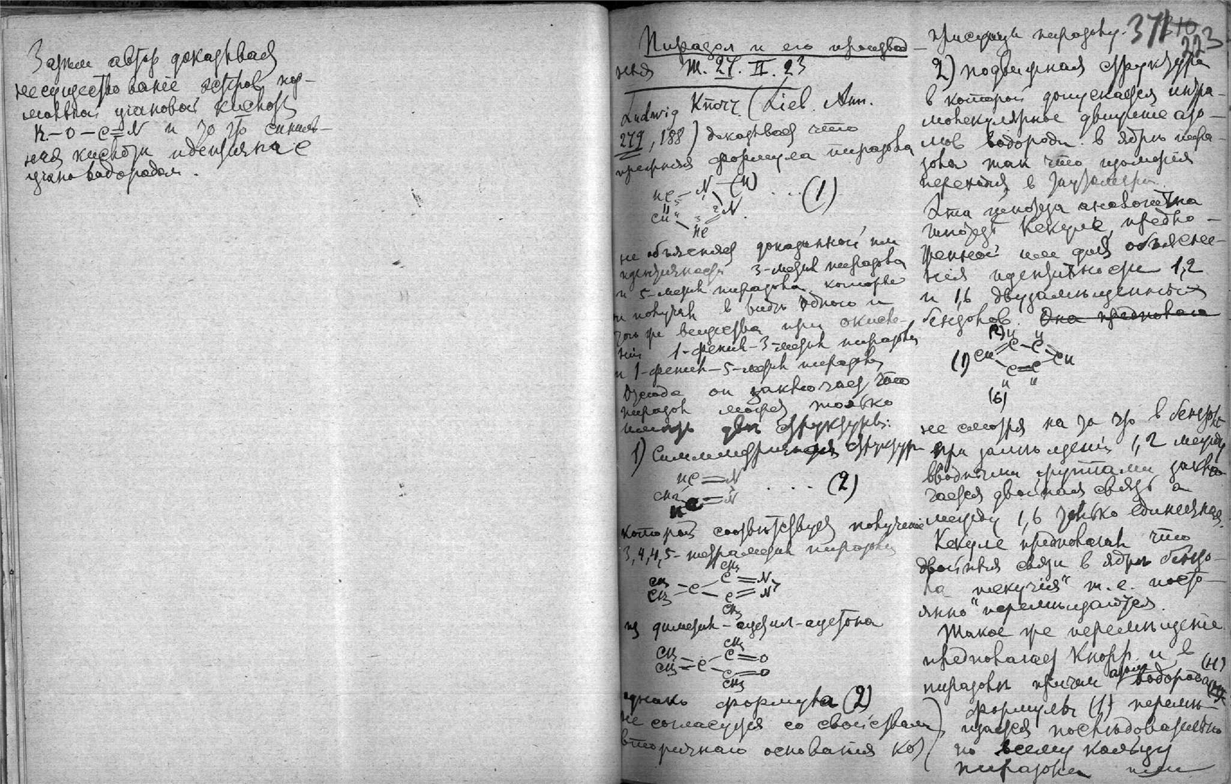 Затем автор доказывая
несуществование эстеров нор-
мальной циановой кислоты
R-O-C≡N и то что синиль-
ная кислота идентична с
циано водородом.
371 370
223
Пиразол и его производ-
ныя Ж. 27. II. 23
Ludwig Knorr (Lieb. Ann.
279, 188) доказывает что
прежняя формула пиразола
HC N (H) . . . (1)
CH N
HC
не объясняет доказанной им
идентичности 3-метил пиразола
и 5-метил пиразола, которые
он получил в виде одного и
того же вещества при окисле-
нии 1-фенил-3-метил пиразола
и 1-фенил-5-метил пиразола
Отсюда он заключает что
пиразол может только
иметь две структуры:
1) Симметричная структура
HC=N
CH2 . . . . (2)
HC=N
которой соответствует получение
3,4,4,5-тетраметил пиразола
CH3 CH3 C C=N
CH3 C=N
CH3
из диметил-ацетил-ацетона
CH3
CH3 C=O
CH3 C C=O
CH3
однако формула (2)
не согласуется со свойствами
вторичнаго основания ко)
присущи пиразолу.
2) подвижная структура
в которой допускается интра-
молекулярное движение ато-
мов водорода в ядре пира-
зола так что изомеры
переходят в таутомеры.
Эта гипотеза аналогична
гипотезе Кекуле, предло-
женной им для объясне-
ния идентичности 1,2
и 1,6 двузамещенных
бензолов. Она предполага
(2) H H
C C
(1) CH CH
C=C
H H
(6)
не смотря на то что в бензоле
при замещении 1,2 между
вводными группами заклю-
чается двойная связь а
между 1,6 только единичная
Кекуле предполагал что
двойныя связи в ядре бензо-
ла "текучия" т.е. посто-
янно перемещаются.
Такое же перемещение
предполагает Knorr и в
пиразоле причем атом водорода (H)
формулы (1) переме-
щается последовательно
по всему кольцу
пиразола или